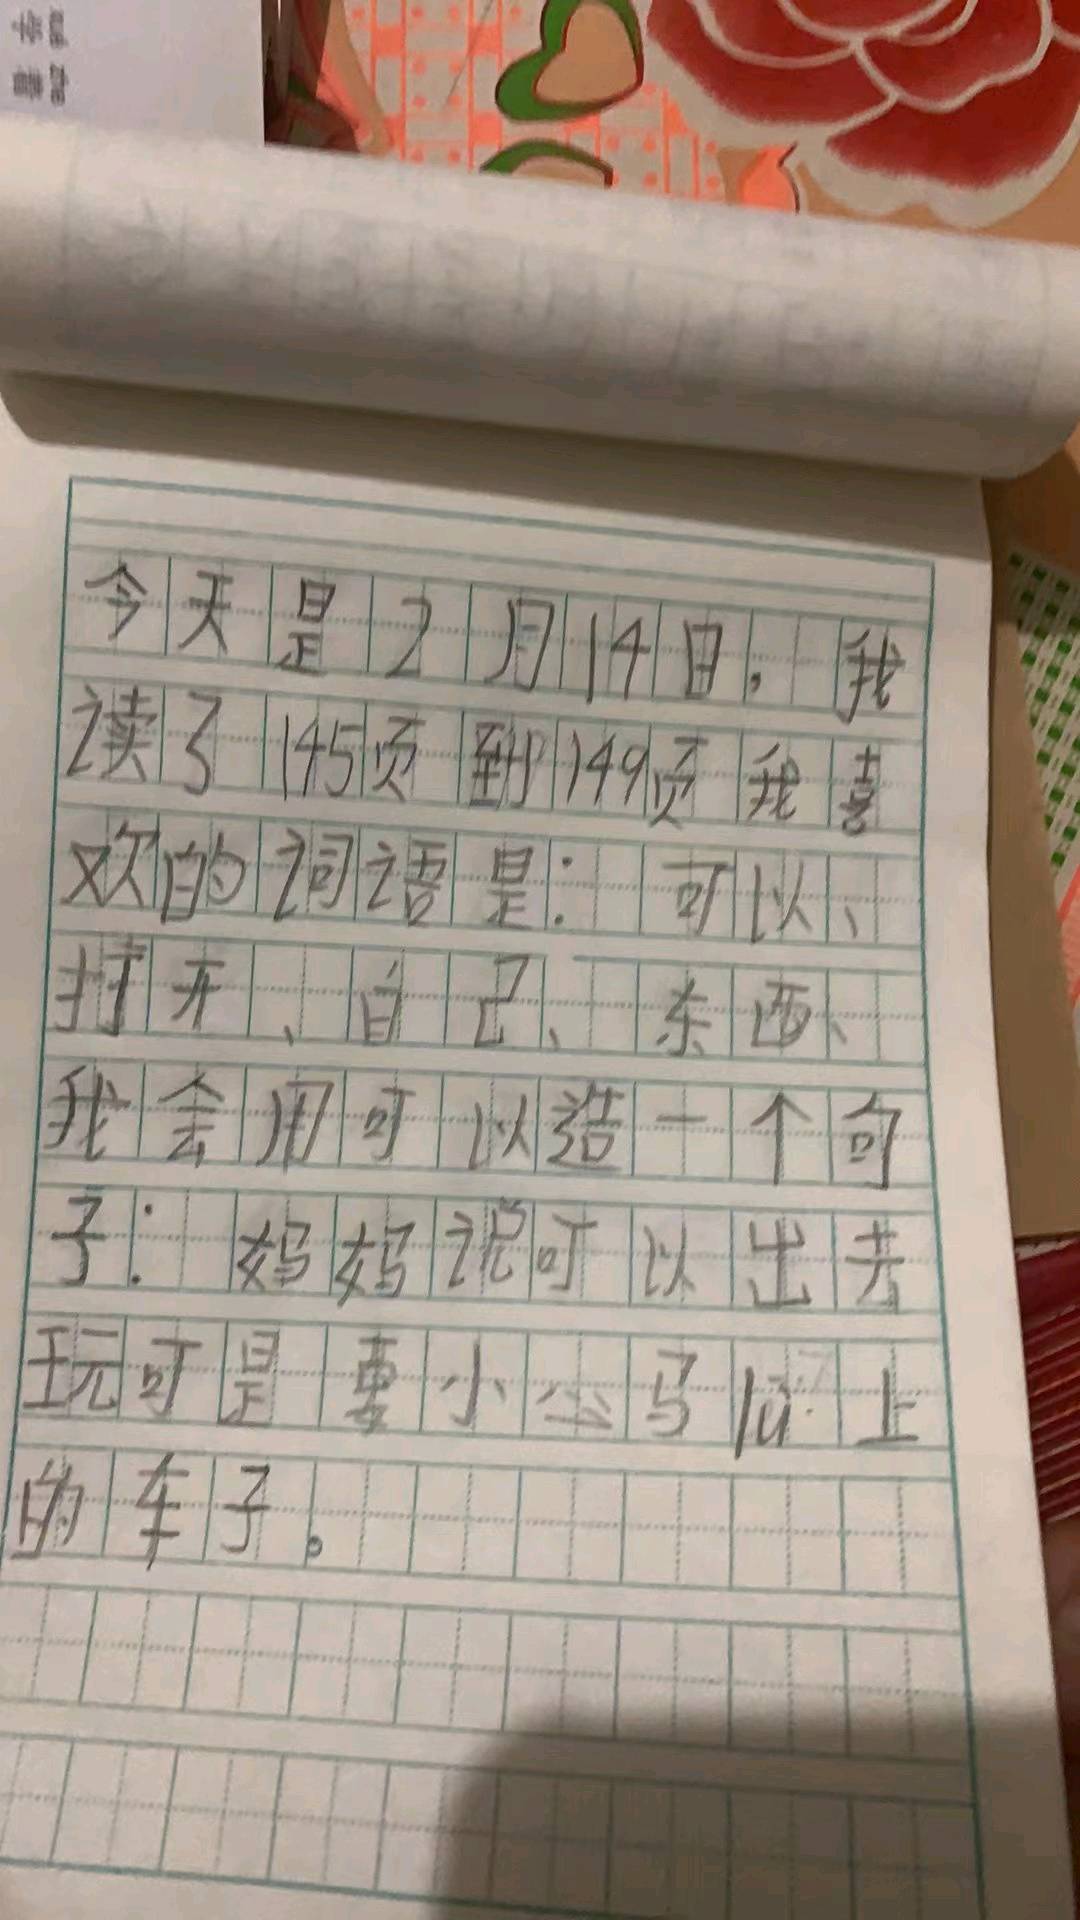 今天是2月14日，我
读了145页到149页我喜
欢的词语是：可以、
打开、自己、东西、
我会用可以造一个句
子：妈妈说可以出去
玩可是要小心马lù上
的车子。